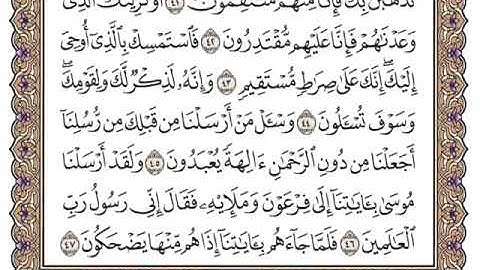 نَذْهَبَنَّ بِكَ فَإِنَّا مِنْهُم مُّنتَقِمُونَ ٤١ أَوْ نُرِيَنَّكَ ٱلَّذِى
وَعَدْنَٰهُمْ فَإِنَّا عَلَيْهِم مُّقْتَدِرُونَ ٤٢ فَٱسْتَمْسِكْ بِٱلَّذِىٓ أُوحِىَ
إِلَيْكَ ۖ إِنَّكَ عَلَىٰ صِرَٰطٍ مُّسْتَقِيمٍ ٤٣ وَإِنَّهُۥ لَذِكْرٌ لَّكَ وَلِقَوْمِكَ ۖ
وَسَوْفَ تُسْـَٔلُونَ ٤٤ وَسْـَٔلْ مَنْ أَرْسَلْنَا مِن قَبْلِكَ مِن رُّسُلِنَآ
أَجَعَلْنَا مِن دُونِ ٱلرَّحْمَٰنِ ءَالِهَةً يُعْبَدُونَ ٤٥ وَلَقَدْ أَرْسَلْنَا
مُوسَىٰ بِـَٔايَٰتِنَآ إِلَىٰ فِرْعَوْنَ وَمَلَإِي۟هِۦ فَقَالَ إِنِّى رَسُولُ رَبِّ
ٱلْعَٰلَمِينَ ٤٦ فَلَمَّا جَآءَهُم بِـَٔايَٰتِنَآ إِذَا هُم مِّنْهَا يَضْحَكُونَ ٤٧